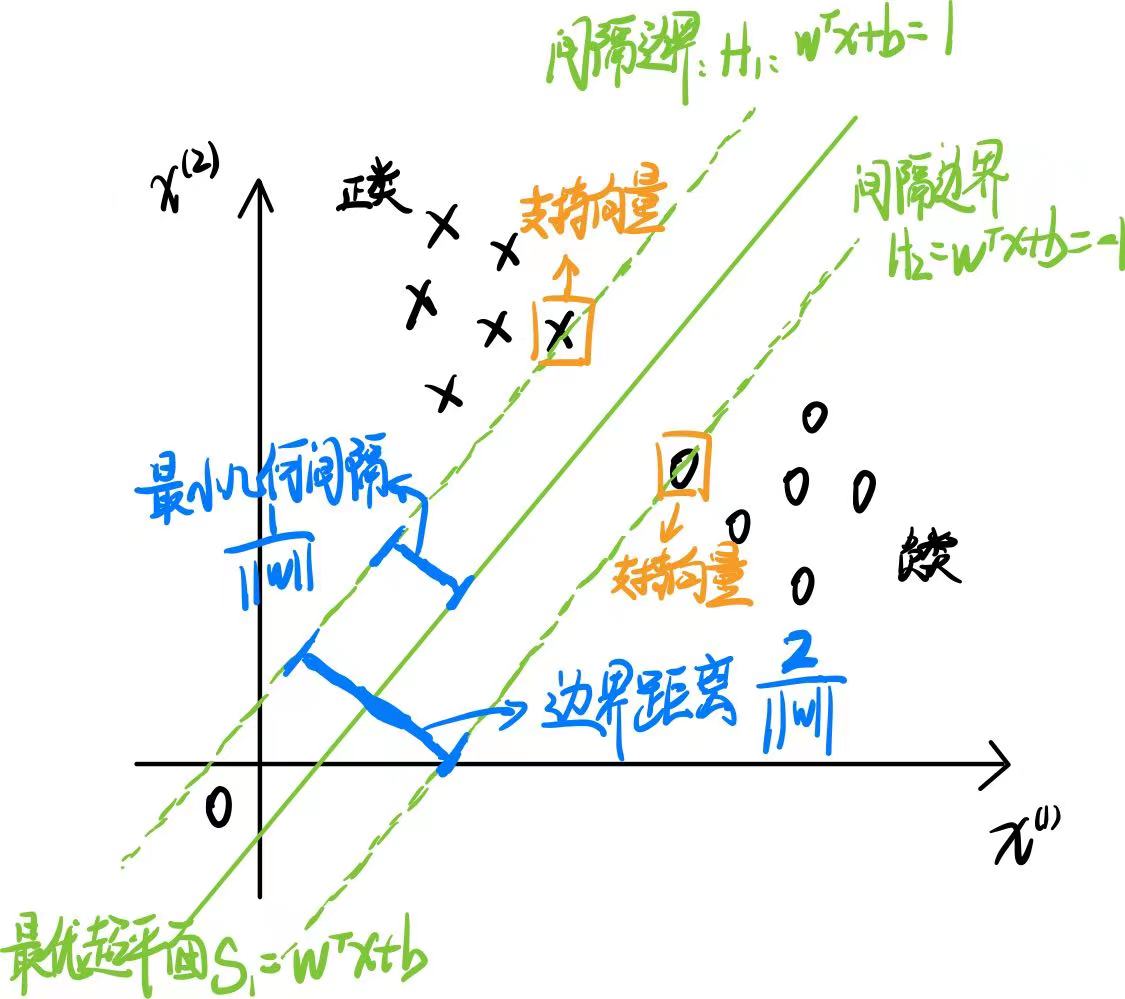 间隔边界: H₁: wᵀx+b=1
x⁽²⁾
正类
支持向量
间隔边界
H₂=wᵀx+b=-1
最小几何间隔
1
||w||
支持向量
负类
边界距离 2
||w||
0
x⁽¹⁾
最优超平面S₁=wᵀx+b